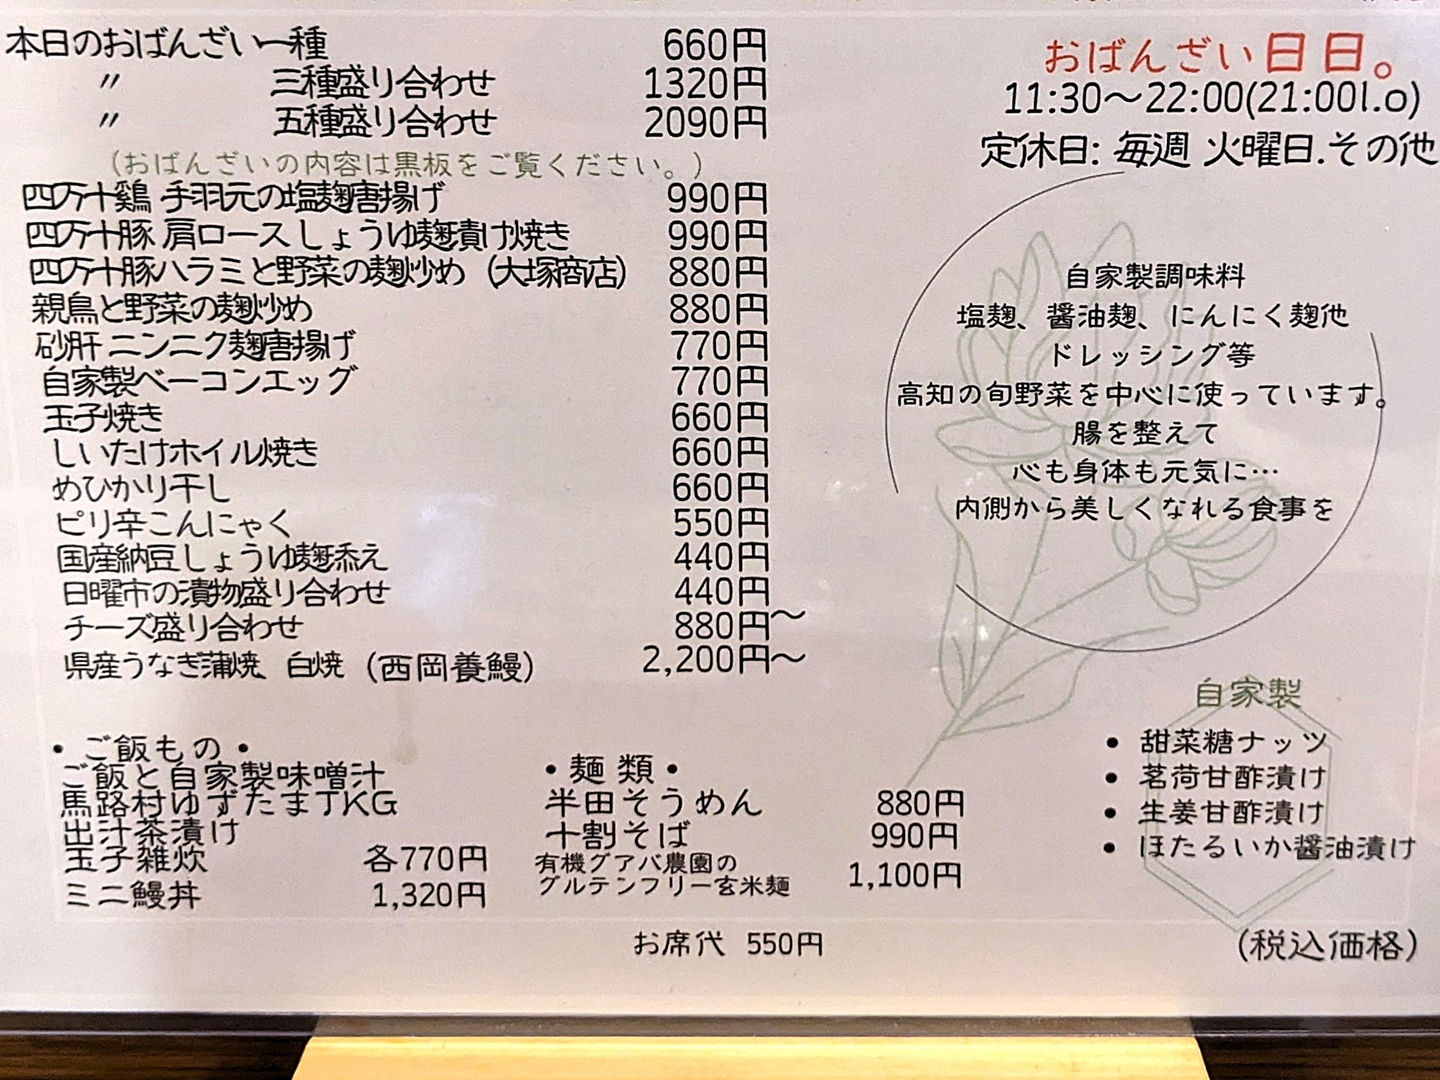 本日のおばんざい一種 660円
〃 三種盛り合わせ 1320円
〃 五種盛り合わせ 2090円
(おばんざいの内容は黒板をご覧ください。)
四万十鶏 手羽元の塩麹唐揚げ 990円
四万十豚 肩ロースしょうゆ麹漬け焼き 990円
四万十豚ハラミと野菜の麹炒め (大塚商店) 880円
親鳥と野菜の麹炒め 880円
砂肝 ニンニク麹唐揚げ 770円
自家製ベーコンエッグ 770円
玉子焼き 660円
しいたけホイル焼き 660円
めひかり干し 660円
ピリ辛こんにゃく 550円
国産納豆しょうゆ麹添え 440円
日曜市の漬物盛り合わせ 440円
チーズ盛り合わせ 880円〜
県産うなぎ蒲焼 白焼 (西岡養鰻) 2,200円〜
・ご飯もの・
ご飯と自家製味噌汁
馬路村ゆずたまTKG
出汁茶漬け
玉子雑炊 各770円
ミニ鰻丼 1,320円
・麺類・
半田そうめん 880円
十割そば 990円
有機グアバ農園の
グルテンフリー玄米麺 1,100円
お席代 550円
おばんざい日日。
11:30〜22:00(21:00l.o)
定休日: 毎週 火曜日.その他
自家製調味料
塩麹、醤油麹、にんにく麹他
ドレッシング等
高知の旬野菜を中心に使っています。
腸を整えて
心も身体も元気に…
内側から美しくなれる食事を
自家製
• 甜菜糖ナッツ
• 茗荷甘酢漬け
• 生姜甘酢漬け
• ほたるいか醤油漬け
(税込価格)